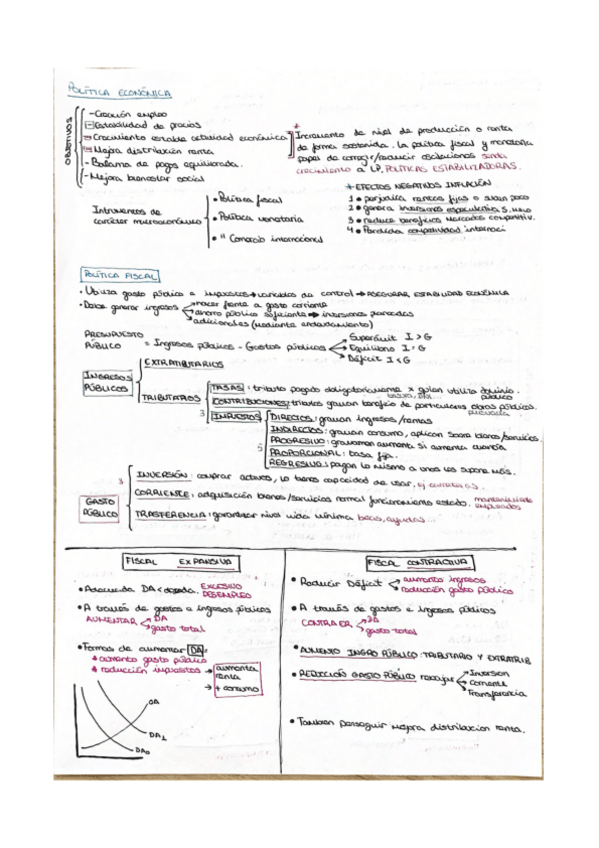 POLÍTICA ECONÓMICA
OBJETIVOS
- Creación empleo
- Estabilidad de precios
- Crecimiento estable actividad económica
- Mejora distribución renta
- Balanza de pagos equilibrada.
- Mejora bienestar social
* Incremento de nivel de producción o renta
de forma sostenida. La política fiscal y monetaria
papel de corregir/reducir oscilaciones senda
crecimiento a LP. POLÍTICAS ESTABILIZADORAS.
* EFECTOS NEGATIVOS INFLACIÓN
1 • perjudica rentas fijas o suben poco
2 • genera inversiones especulativas
3 • reduce beneficios mercados competitiv.
4 • Pérdida competitividad internaci
Intrumentos de
carácter macroeconómico
• Política fiscal
• Política monetaria
• " Comercio internacional
POLÍTICA FISCAL
• Utiliza gasto público e impuestos → variables de control → ASEGURAR ESTABILIDAD ECONÓMICA
• Debe generar ingresos → hacer frente a gasto corriente
→ ahorro público suficiente → inversiones
→ adicionales (mediante endeudamiento)
PRESUPUESTO
PÚBLICO = Ingresos públicos - Gastos públicos
Superávit I > G
Equilibrio I = G
Déficit I < G
INGRESOS
PÚBLICOS
EXTRATRIBUTARIOS
TRIBUTARIOS
3
TASAS: tributo pagado obligatoriamente x quien utiliza dominio
público
CONTRIBUCIONES: tributos gravan beneficio de particulares obras públicas.
IMPUESTOS
5
DIRECTOS: gravan ingresos/rentas
INDIRECTOS: gravan consumo, aplican sobre bienes/servicios.
PROGRESIVO: gravamen aumenta si aumenta cuantía
PROPORCIONAL: tasa fija.
REGRESIVO: pagan lo mismo a unos les supone más.
GASTO
PÚBLICO
3
INVERSIÓN: comprar activos, lo bienes capacidad de usar, ej carreteras.
CORRIENTE: adquisición bienes/servicios normal funcionamiento estado. mantenimiento
empleados
TRASFERENCIA: garantizar nivel vida mínima becas, ayudas...
FISCAL EXPANSIVA
• Adecuada DA < deseada. EXCESIVO
DESEMPLEO
• A través de gastos e ingresos públicos
AUMENTAR → DA
→ gasto total
• Formas de aumentar DA:
* aumento gasto público
* reducción impuestos → aumenta
renta
→ + consumo
OA
DA1
DA0
FISCAL CONTRACTIVA
• Reducir Déficit → aumento ingresos
→ reducción gasto público
• A través de gastos e ingresos públicos
CONTRAER → DA
→ gasto total
• AUMENTO INGRO PÚBLICO: TRIBUTARIO Y EXTRATRIB
• REDUCCIÓN GASTO PÚBLICO rebajar
Inversion
corriente
Transferencia
• Tambien perseguir mejora distribucion renta.